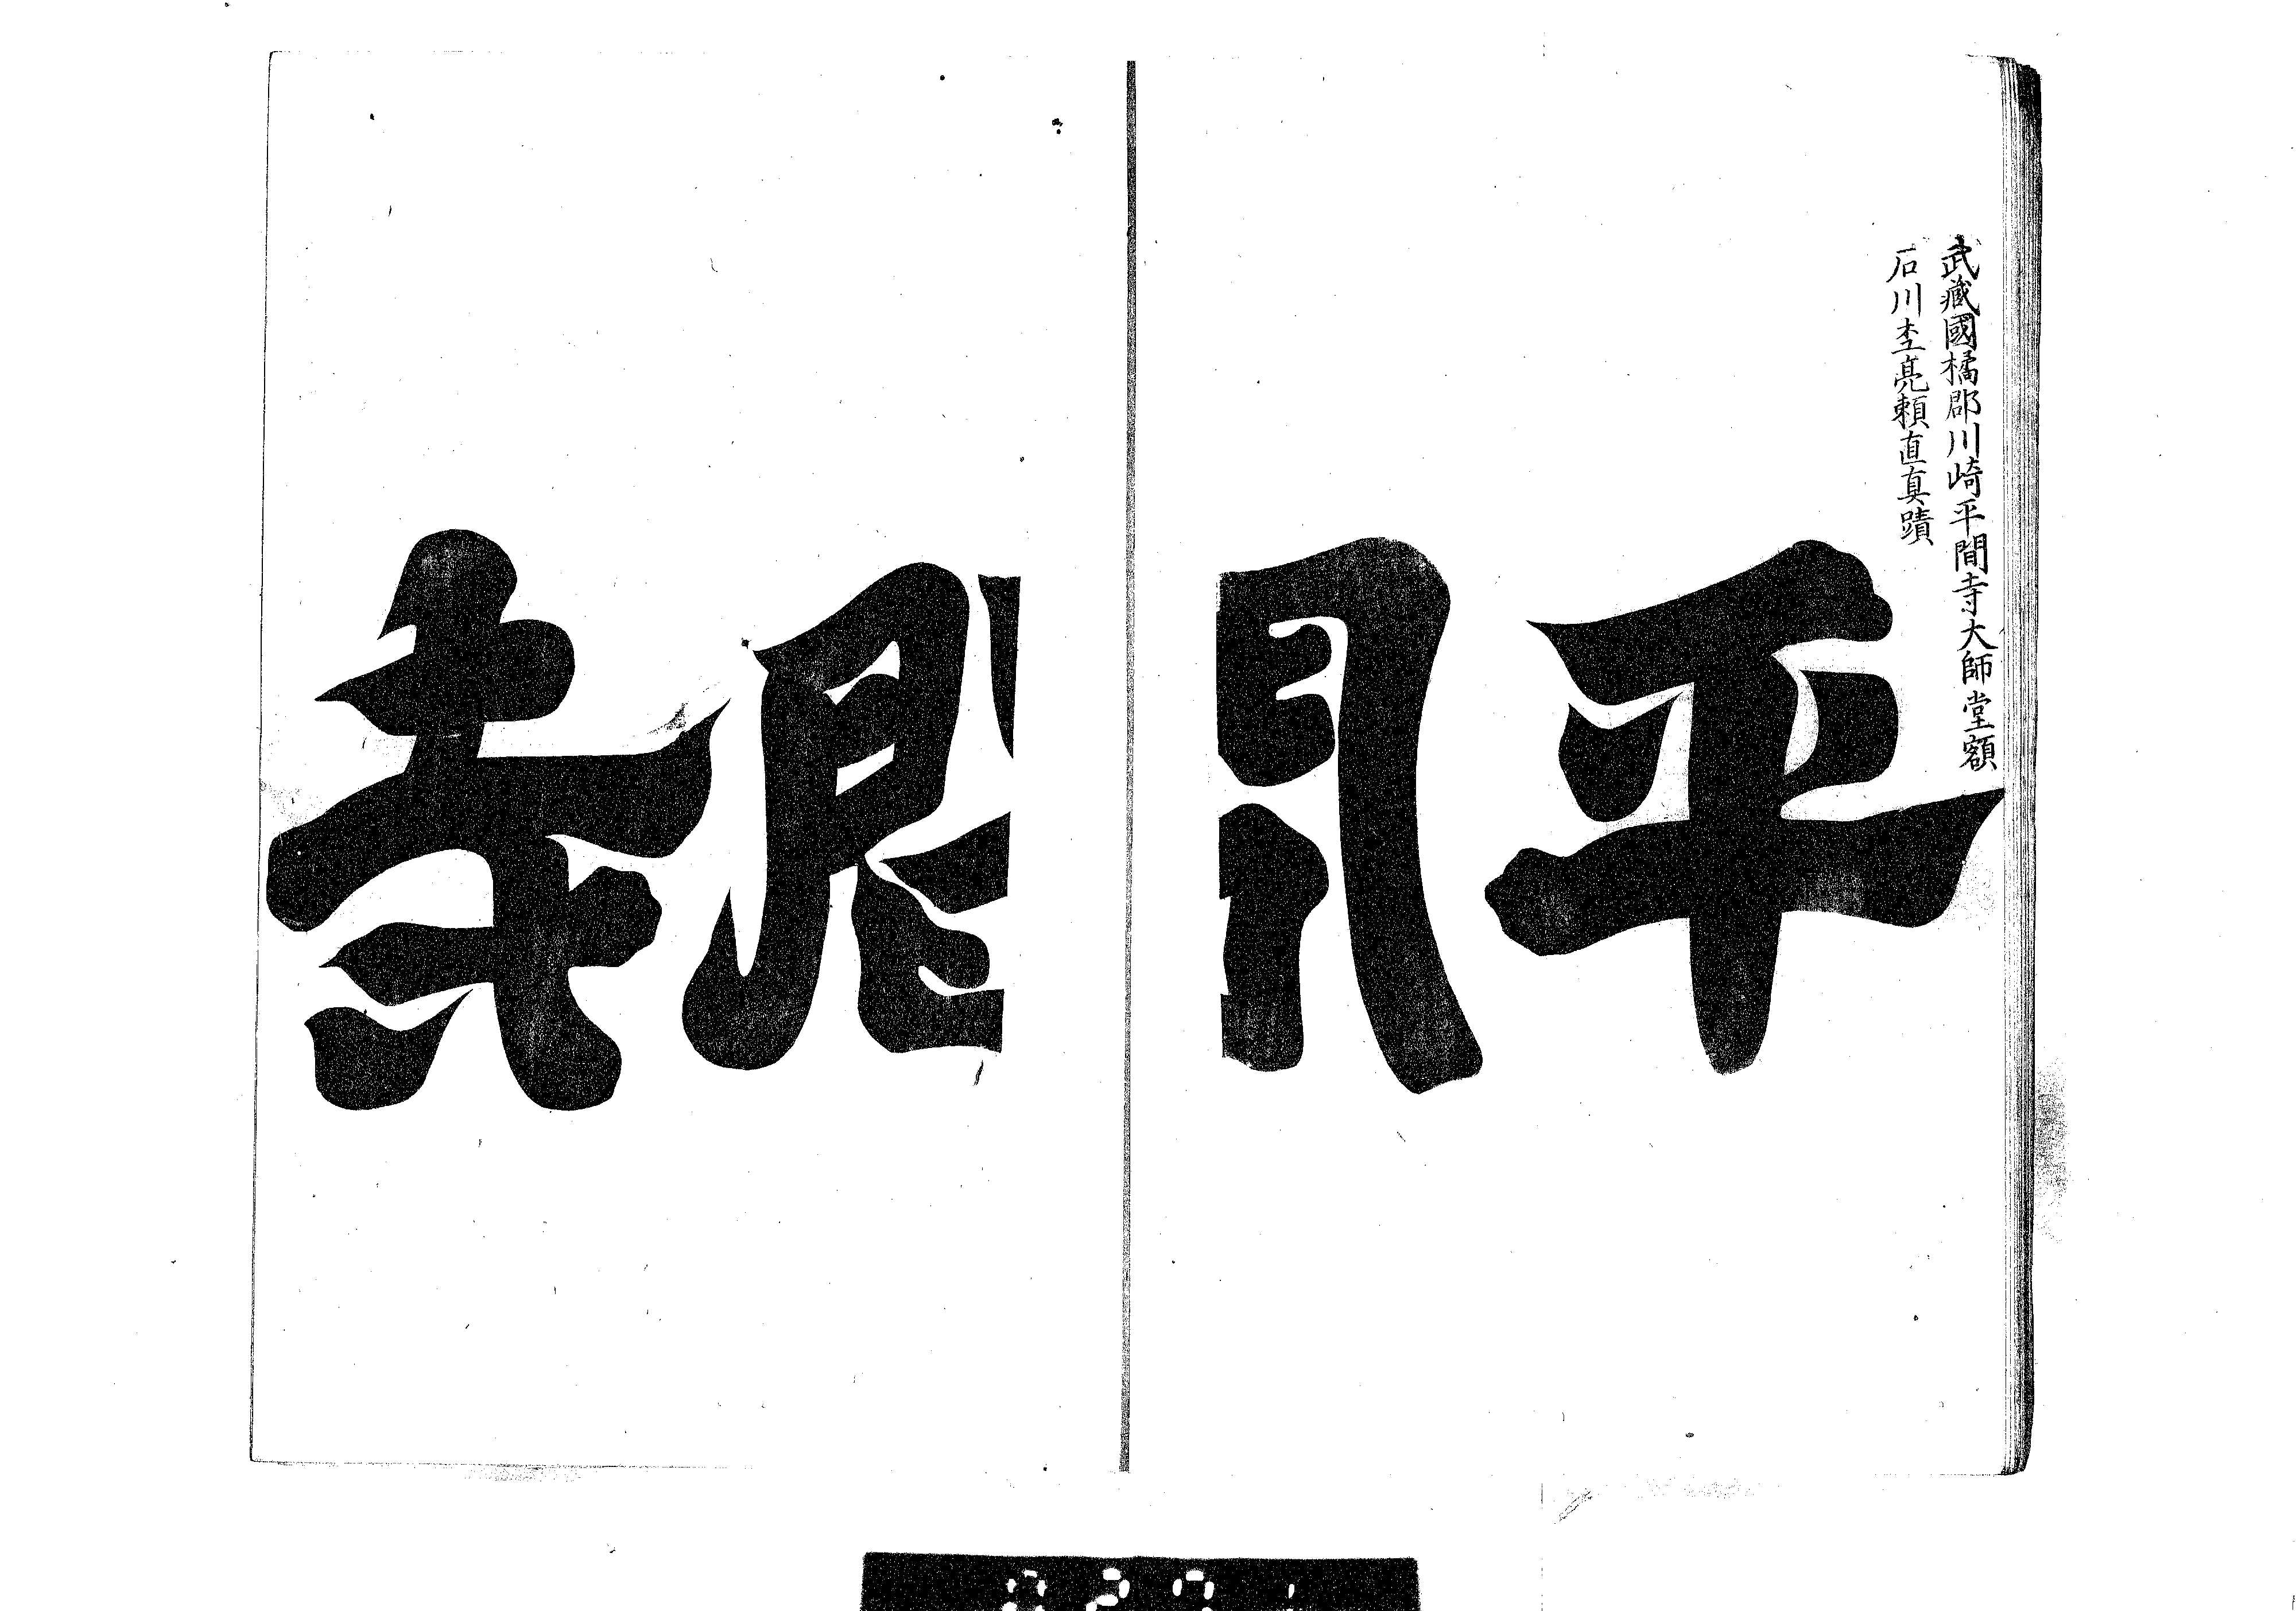 武藏國橘郡川崎平間寺大師堂額
石川杢亮頼直真蹟
平間寺